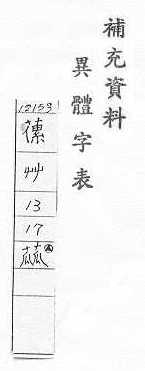 補充資料
異體字表
12159
艸
13
17